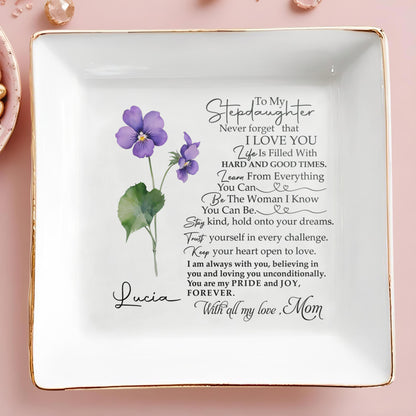 To My
Stepdaughter
Never forget that
I LOVE YOU
Life Is Filled With
HARD AND GOOD TIMES.
Learn From Everything
You Can
Be The Woman I Know
You Can Be.
Stay kind, hold onto your dreams.
Trust yourself in every challenge.
Keep your heart open to love.
I am always with you, believing in
you and loving you unconditionally.
You are my PRIDE and JOY,
FOREVER.
With all my love, Mom
Lucia